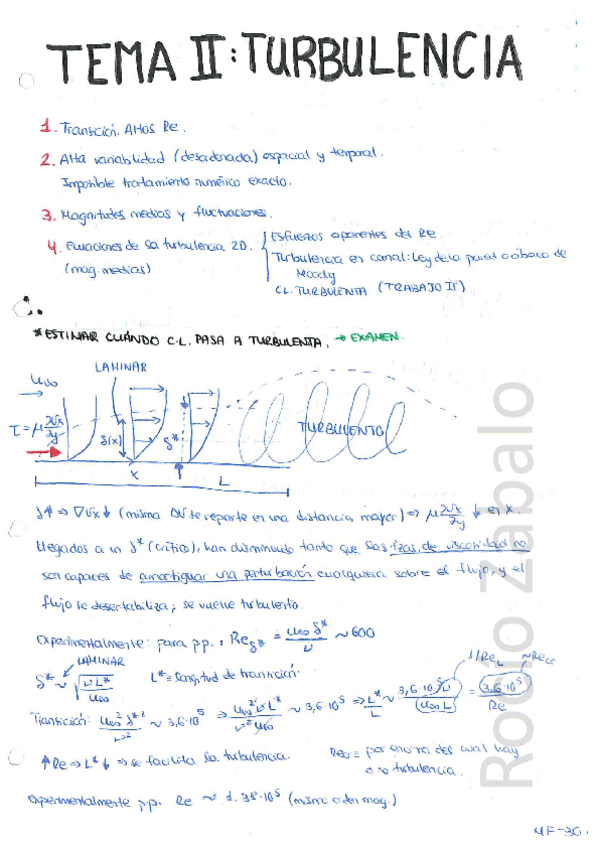 TEMA II: TURBULENCIA
1. Transición. Altos Re.
2. Alta variabilidad (desordenada) espacial y temporal.
Imposible tratamiento numérico exacto.
3. Magnitudes medias y fluctuaciones.
4. Ecuaciones de la turbulencia 2D.
(mag. medias)
Esfuerzos aparentes del Re
Turbulencia en canal: Ley de la pared o ábaco de
Moody
CL. TURBULENTA (TRABAJO II)
* ESTIMAR CUÁNDO C.L. PASA A TURBULENTA. → EXAMEN.
LAMINAR
U∞
τ = μ ∂Ux/∂y
δ(x)
δ*
TURBULENTO
x
L
δ↑ ⇒ ∇Ux↓ (misma ΔU se reparte en una distancia mayor) ⇒ μ ∂Ux/∂y ↓ en x.
Llegados a un δ* (crítico), han disminuido tanto que las fzas. de viscosidad no
son capaces de amortiguar una perturbación cualquiera sobre el flujo, y el
flujo se desestabiliza, se vuelve turbulento.
Experimentalmente: para p.p.: Re_δ* = U∞ δ*/ν ~ 600
LAMINAR
δ* ~ √(ν L*/U∞)
L* ≡ longitud de transición
1/Re_L
Transición: U∞² δ*²/ν² ~ 3,6·10⁵ ⇒ U∞² ν L*/ν² U∞ ~ 3,6·10⁵ ⇒ L*/L ~ 3,6·10⁵ ν/(U∞ L) = 3,6·10⁵/Re
↑Re ⇒ L*↓ ⇒ se facilita la turbulencia.
por encima del cual hay
turbulencia.
Experimentalmente p.p. Re ~
(mismo orden mag.)
MF-30.
Rocío Zabalo